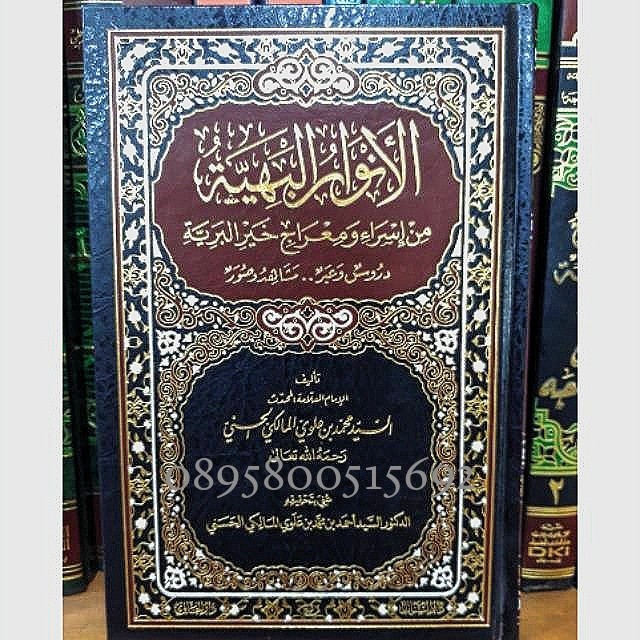 الأنوار البهية
من إسراء ومعراج خير البرية
دروس وعبر .. مشاهد وصور
تأليف
الإمام العلامة المحدث
السيد محمد بن علوي المالكي الحسني
رحمه الله تعالى
0895800515692
عني بتحقيقه
الدكتور السيد أحمد بن محمد بن علوي المالكي الحسني
٢
DKi